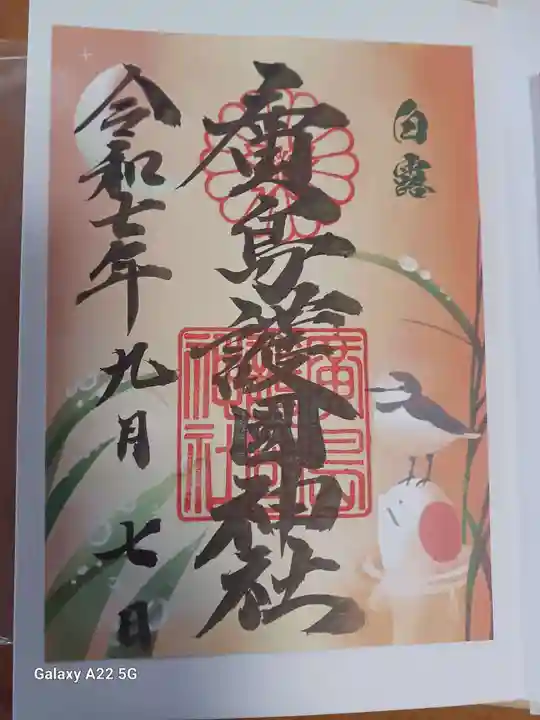 白露
廣島護國神社
令和七年九月七日
Galaxy A22 5G